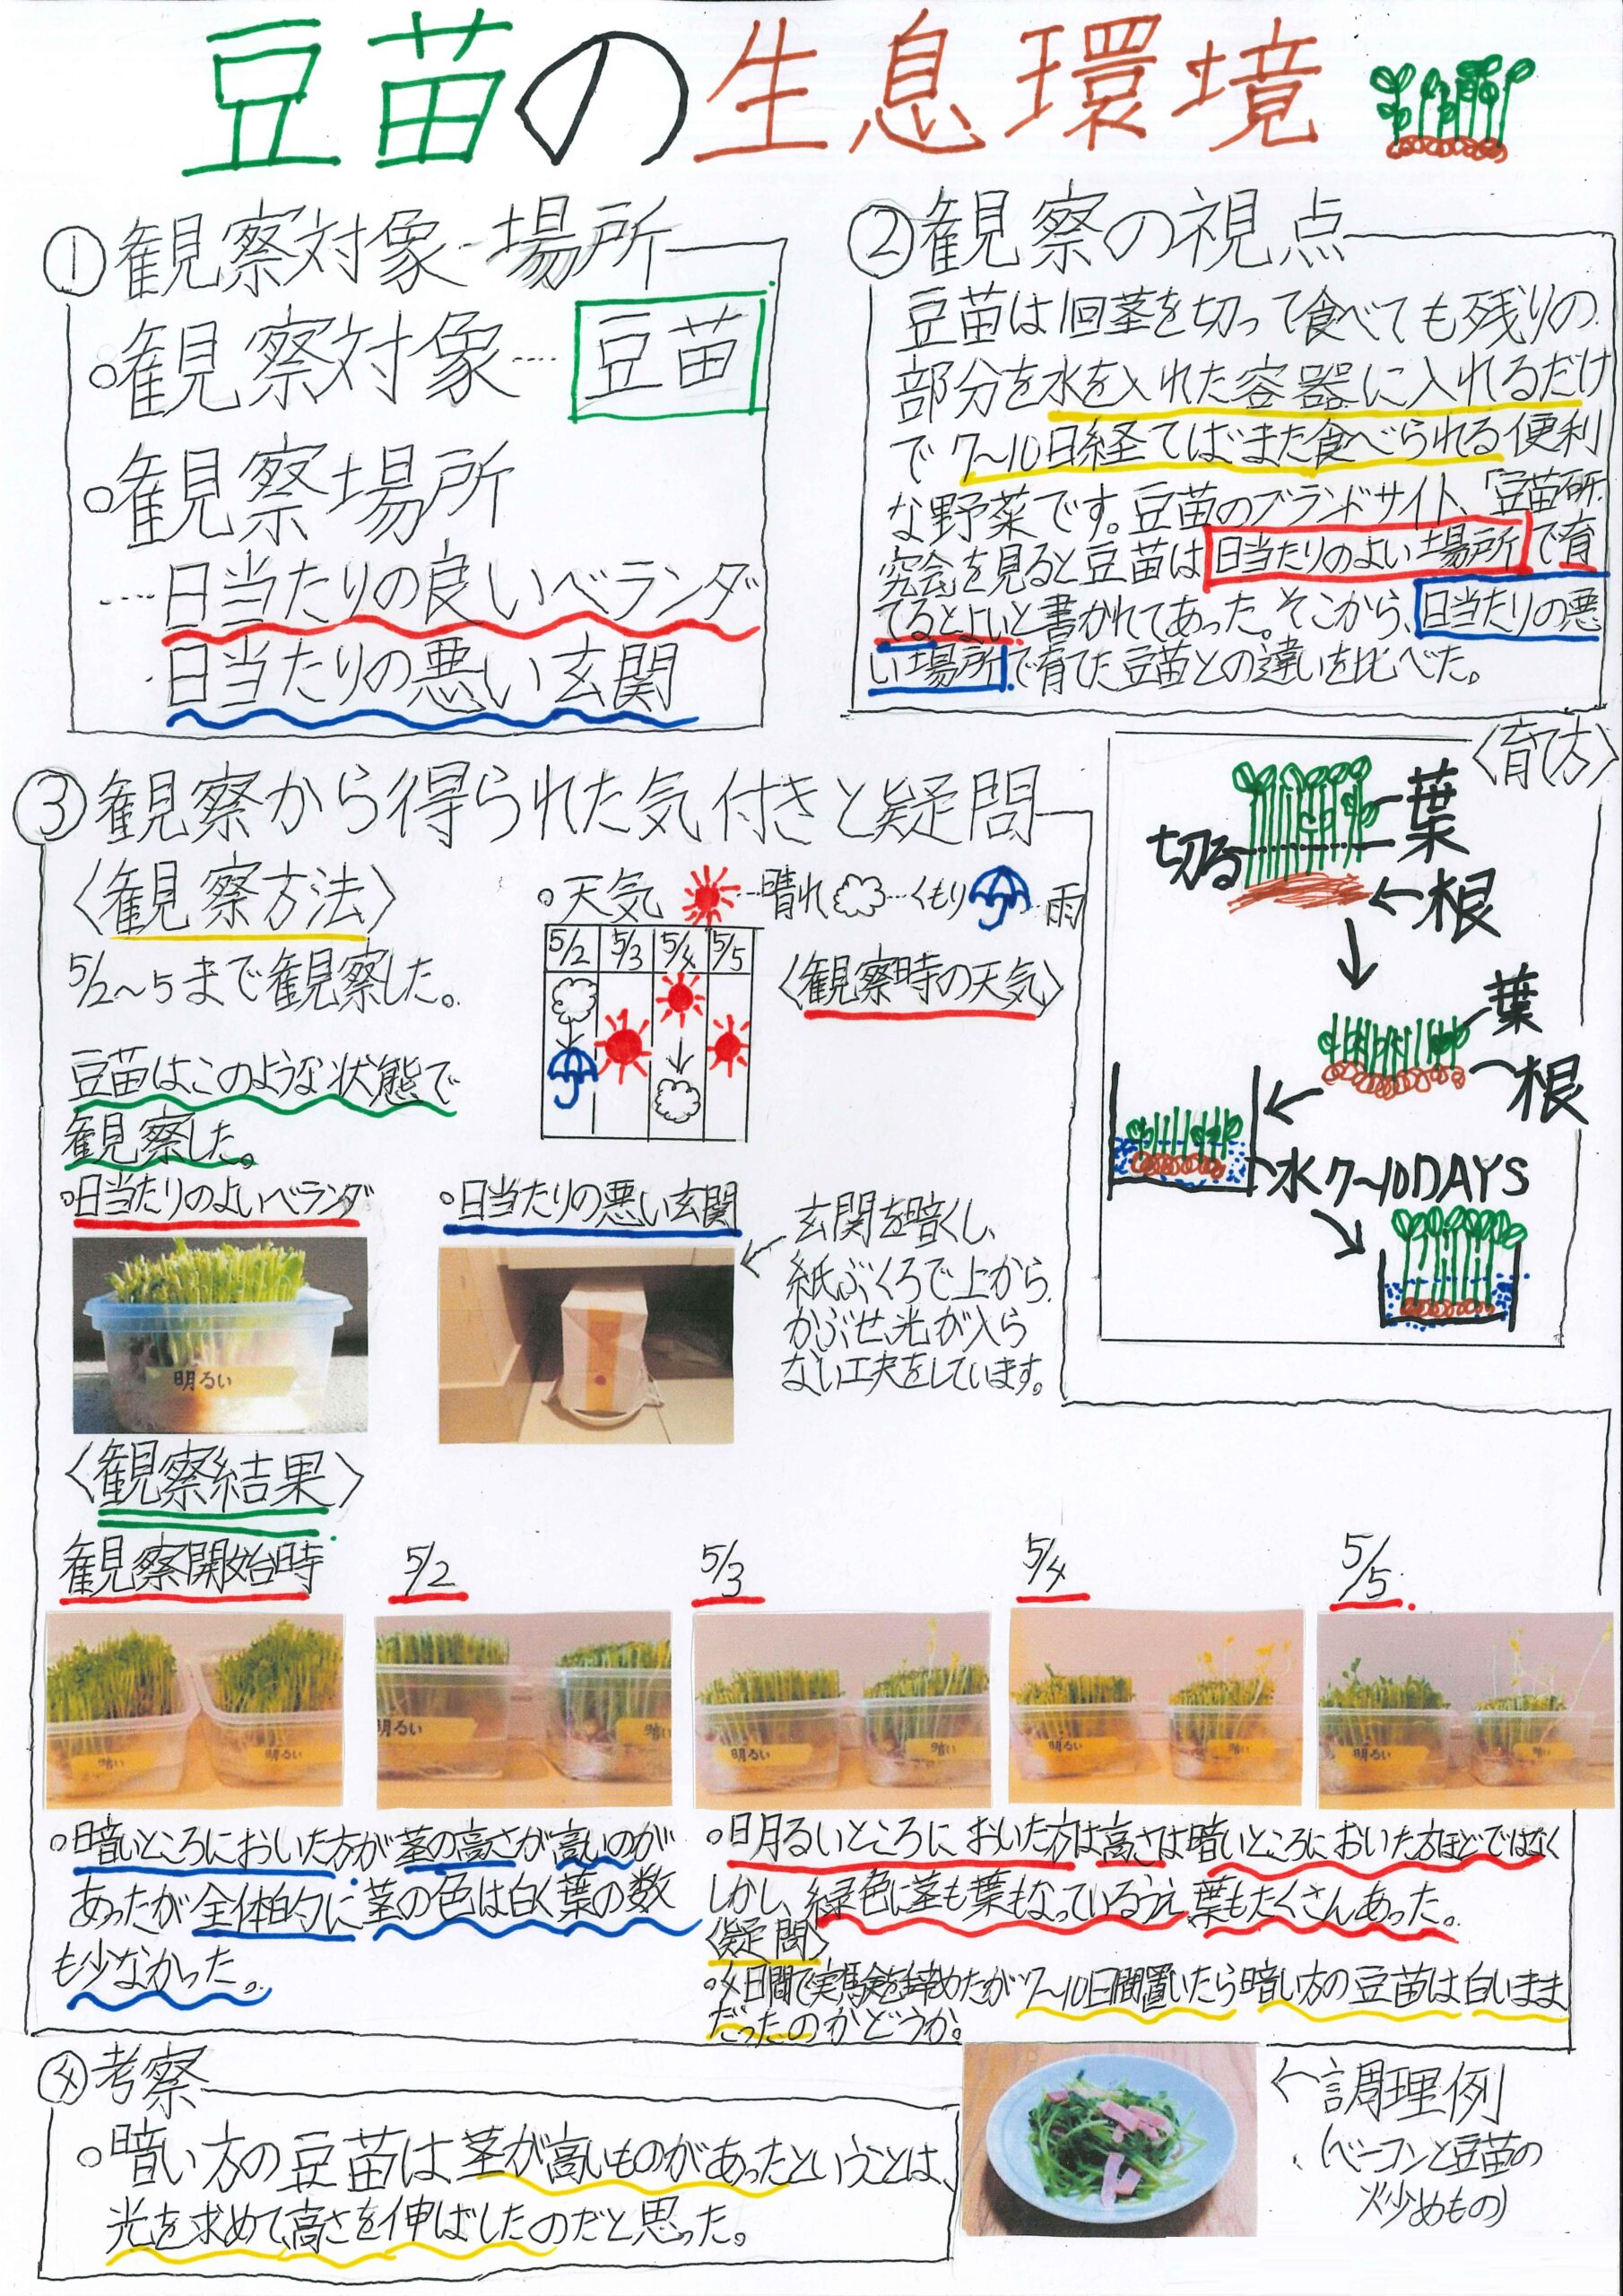 豆苗の生息環境
①観察対象・場所
○観察対象…豆苗
○観察場所
…日当たりの良いベランダ
日当たりの悪い玄関
②観察の視点
豆苗は1回茎を切って食べても残りの
部分を水を入れた容器に入れるだけ
で7~10日経てばまた食べられる便利
な野菜です。豆苗のブランドサイト、「豆苗研
究会を見ると豆苗は日当たりのよい場所で育
てるとよいと書かれてあった。そこから、日当たりの悪
い場所で育てた豆苗との違いを比べた。
〈育て方〉
葉
切る
←根
葉
根
水7~10DAYS
③観察から得られた気付きと疑問
〈観察方法〉
5/2~5まで観察した。
豆苗はこのような状態で
観察した。
○天気 …晴れ …くもり …雨
5/2 5/3 5/4 5/5
〈観察時の天気〉
○日当たりのよいベランダ
明るい
○日当たりの悪い玄関
玄関を暗くし、
紙ぶくろで上から
かぶせ光が入ら
ない工夫をしています。
〈観察結果〉
観察開始時 5/2 5/3 5/4 5/5
暗い 明るい 明るい 暗い 明るい 暗い 明るい 暗い 明るい 暗い
○暗いところにおいた方が茎の高さが高いのが
あったが全体的に茎の色は白く葉の数
も少なかった。
○明るいところにおいた方は高さは暗いところにおいた方ほどではなく
しかし、緑色に茎も葉もなっているうえ葉もたくさんあった。
〈疑問〉
○4日間で実験を締めたが7~10日間置いたら暗い方の豆苗は白いまま
だったのかどうか。
④考察
○暗い方の豆苗は茎が高いものがあったということは、
光を求めて高さを伸ばしたのだと思った。
←調理例
(ベーコンと豆苗の
炒めもの)